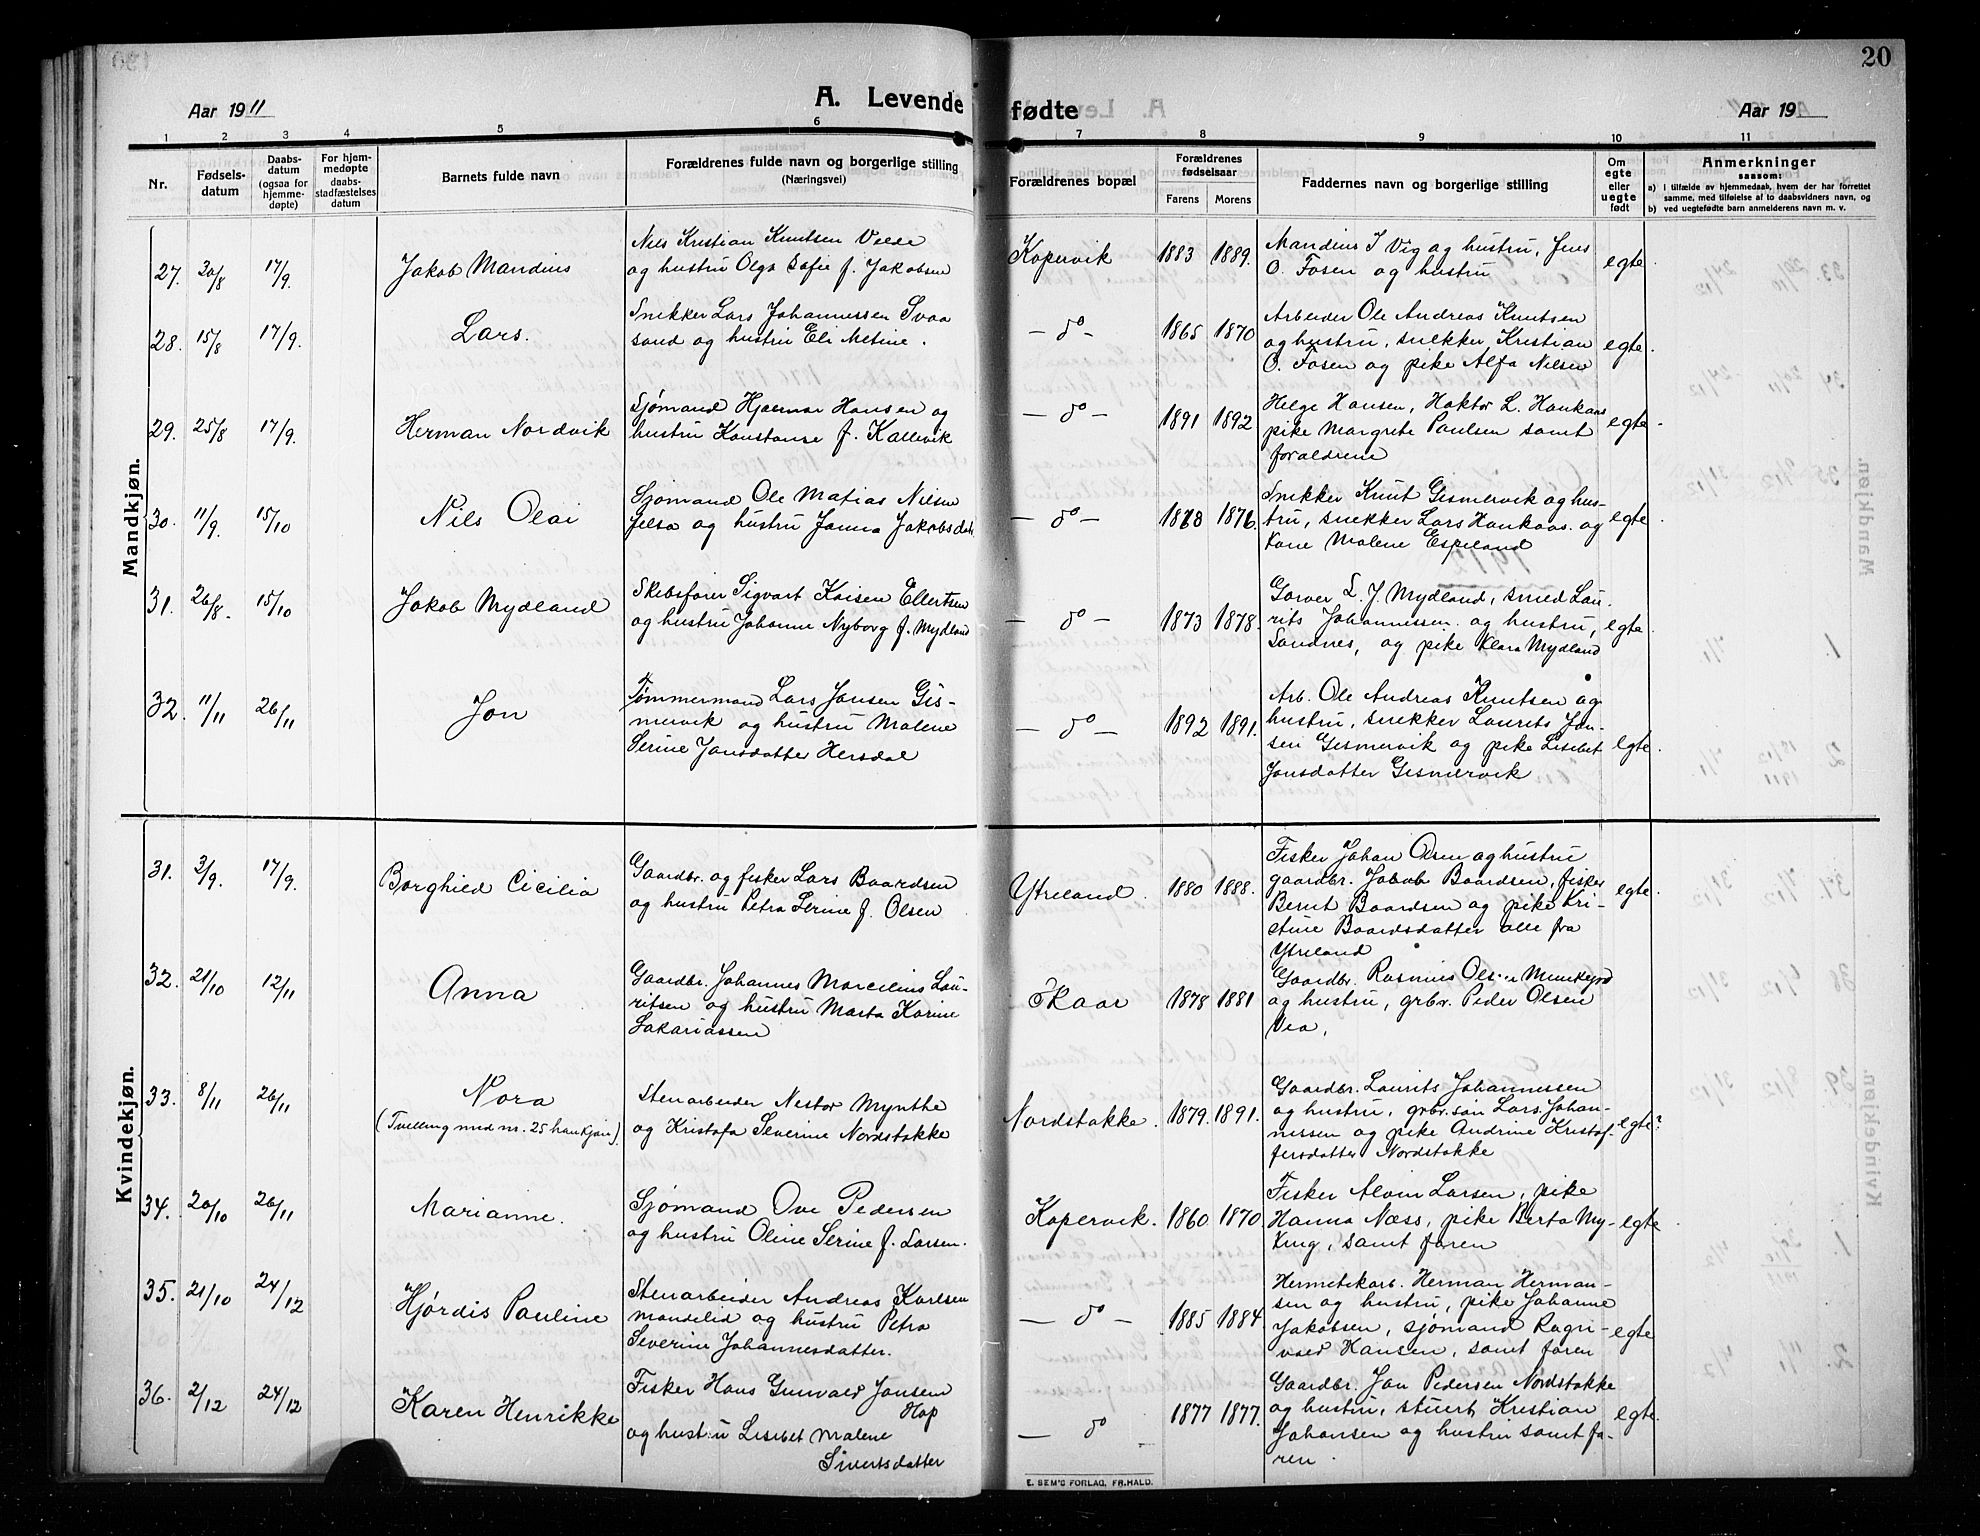 20
Aar 1911
A. Levende fødte
Aar 19
1 2 3 4 5 6 7 8 9 10 11
Nr.
Fødsels-
datum
Daabs-
datum
(ogsaa for
hjemme-
døpte)
For hjem-
medøpte
daabs-
stadfæstelses
datum
Barnets fulde navn
Forældrenes fulde navn og borgerlige stilling
(Næringsvei)
Forældrenes bopæl
Forældrenes
fødselsaar
Farens Morens
Faddernes navn og borgerlige stilling
Om
egte
eller
uegte
født
Anmerkninger
saasom:
a) i tilfælde av hjemmedaab, hvem der har forrettet
samme, med tilføielse af to daabsvidners navn, og
b) ved uegtefødte barn anmelderens navn m. v.
Mandkjøn.
27. 30/8 17/9. Jakob Mandius
Nils Kristian Knutsen Veese
og hustru Olga Sofie f. Jakobsen
Kopervik 1883 1889.
Mandius J Vig og hustru, Jens
O. Fosen og hustru
egte.
28. 15/8 17/9. Lars.
Snekker Lars Johannessen Svaa
sand og hustru Eli Metine.
— do — 1865 1870
Arbeider Ole Andreas Knutsen
og hustru, snekker Kristian
O. Fosen og pike Alfa Nilsen
egte.
29. 25/8 17/9. Herman Nordvik
Sjømand Hjalmar Hansen og
hustru Konstanse f. Kallevik
— do — 1891 1892
Helge Hansen, Haktor L. Haukaas
pike Margrete Paulsen samt
forældrene
egte.
30. 11/9. 15/10 Nils Olai
Sjømand Ole Matias Nilsen
Jelsa og hustru Janna Jakobsdatr
— do — 1873 1876.
Snekker Knut Gismervik og hus-
tru, snekker Lars Haukaas. og
Kone Malene Espeland
egte.
31. 26/8. 15/10 Jakob Mydland
Skibsfører Sigvart Kaisen Ellertsen
og hustru Johanne Nyborg f. Mydland
— do — 1873 1878.
Garver L. J. Mydland, smed Lau-
rits Johannessen og hustru,
Sandnes, og pike Klara Mydland
egte.
32. 11/11 26/11 Jon
Tømmermand Lars Jansen Gis-
mervik og hustru Malene
Serine Jonsdatter Hersdal
— do — 1892 1891.
Arb. Ole Andreas Knutsen og
hustru, snekker Laurits Jan-
sen Gismervik og pike Lisibet
Jonsdatter Gismervik
egte.
Kvindekjøn.
31. 3/9. 17/9. Borghild Cicilia
Gaardbr. og fisker Lars Baardsen
og hustru Petra Serine f. Olsen
Ytreland. 1880 1888.
Fisker Johan Olsen og hustru
gaardbr. Jakob Baardsen, fisker
Bernt Baardsen og pike Kri-
stine Baardsdatter alle fra
Ytreland
egte.
32. 21/10 12/11 Anna
Gaardbr. Johannes Marcelius Lau-
ritsen og hustru Marta Karine
Sakariassen
Skaar 1878 1881
Gaardbr. Rasmus Olsen Munkejord
og hustru, grbr. Peder Olsen
Vea,
33. 8/11 26/11 Nora
(Tvelling med nr. 25 hankjøn).
Stenarbeider Nestor Mynthe
og Kristofa Severine Nordstokke
Nordstokke. 1879. 1891.
Gaardbr. Laurits Johannessen
og hustru, grbr.søn Lars Johan-
nessen og pike Andrine Kristof-
fersdatter Nordstokke
egte?
34. 20/10 26/11 Marianne.
Sjømand Ove Pedersen
og hustru Oline Serine f. Larsen.
Kopervik. 1860 1870.
Fisker Alvin Larsen, pike
Hanna Næss, pike Berta My-
king, samt faren
egte
35. 21/10 24/12 Hjørdis Pauline
Stenarbeider Andreas Karlsen
Mandelid og hustru Petra
Severine Johannesdatter.
— do — 1885 1884.
Hermetikarb. Herman Herman-
sen og hustru, pike Johanne
Jakobsen, sjømand Ragn-
vald Hansen, samt faren
egte
36. 2/12 24/12 Karen Henrikke
Fisker Hans Gunvald Jansen
Hop
og hustru Lisibet Malene
Sivertsdatter
— do 1877 1877.
Gaardbr. Jan Pedersen Nordstokke
og hustru, stuert Kristian
Johansen og hustru samt fa-
ren.
egte.
E. SEM'S FORLAG, FR.HALD.